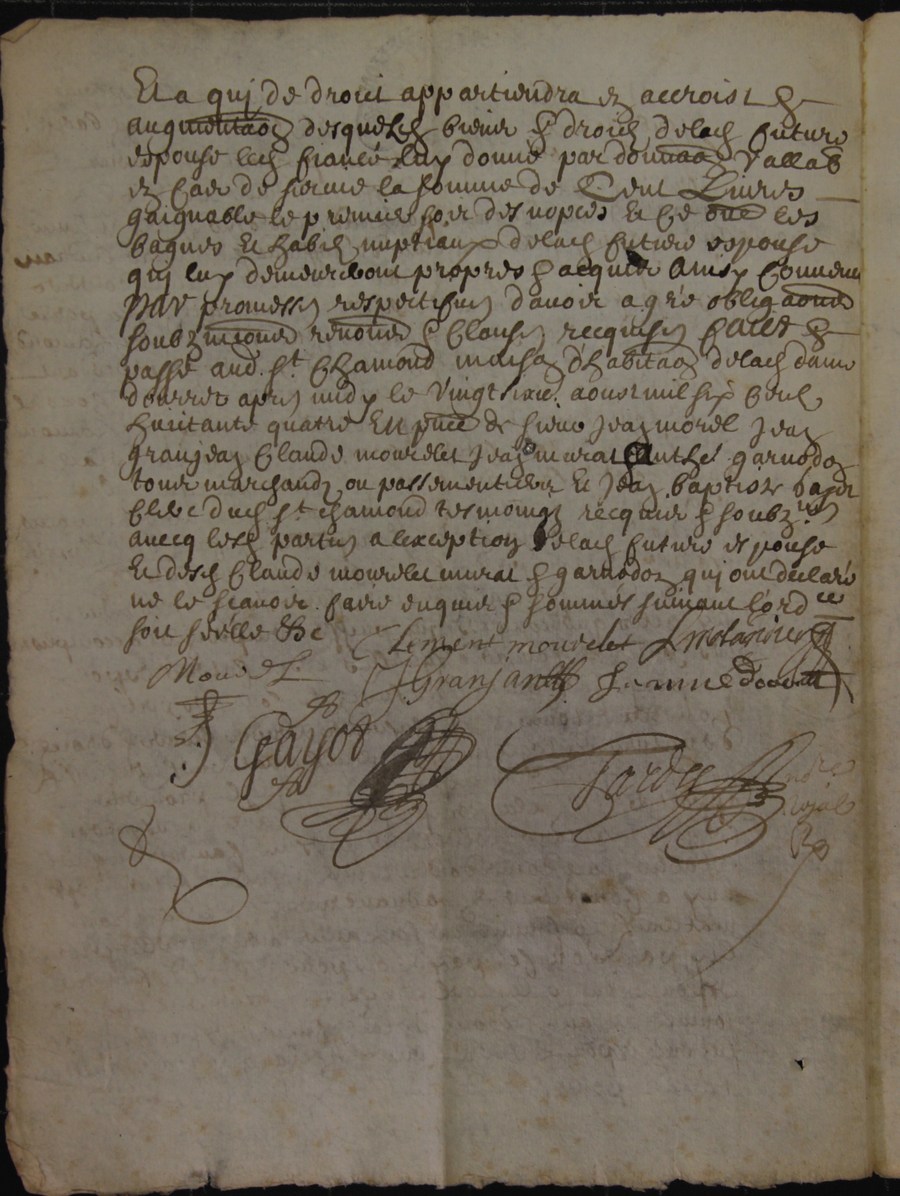 Et a qui de droict appartiendra en accroist &
augmentaon desquelz biens & droictz delad. future
espouse led. fiancé luy donne par donnaon vallab
en cas de survie la somme de Cent Livres
gaignable le premier soir des nopces Et Ce oue les
bagues Et habitz nuptiaux delad. future espouse
quj luy demeureront propres & acquis Ainsy Convenu
par promesses respectives davoir a gré obligaons
soubzmions renons & Clauses recquises faict &
passé aud. St. Chamond maison d'habitaon delad. dame
douvret apres midy le vingt sixie. aoust mil six Cent
huictante quatre En pnce de sieur Jean morel Jean
granjean Claude mourelet Jean murat & garnodon
tous marchandz ou passementiers Et Jean baptiste
Clerc dud. St. chamond tesmoings recquis & soubznes
avecq lesd. parties a lexception delad. future espouse
Et desd. Claude mourelet murat & garnodon qui ont declaré
ne le scavoir faire enquis & sommés suivant lord ce
soit scellé &c Clement mourelet
J Granjan
Gayot Tardy
royal